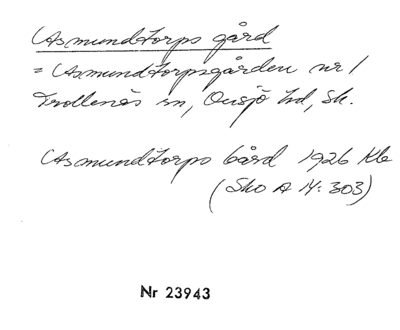 Asmundtorps gård
= Asmundtorpsgården nr 1
Trollenäs sn, Onsjö hd, Sk.
Asmundtorps Gård 1926 Kle
(Sko A 14:303)
Nr 23943